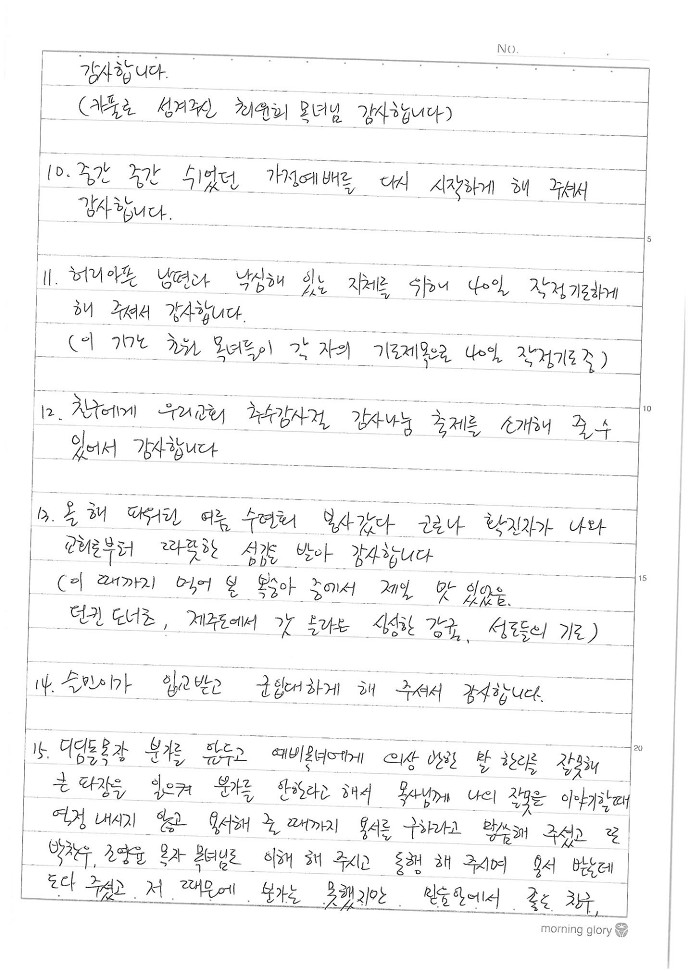 NO.
감사합니다.
(카풀로 섬겨주신 최윤희 목녀님 감사합니다)
10. 중간 중간 쉬었던 가정예배를 다시 시작하게 해 주셔서
감사합니다.
5
11. 허리아픈 남편과 낙심해 있는 지체를 위해 40일 작정기도하게
해 주셔서 감사합니다.
(이 기간 초원 목녀들이 각 자의 기도제목으로 40일 작정기도 중)
10
12. 친구에게 우리교회 추수감사절 감사나눔 축제를 소개해 줄 수
있어서 감사합니다
13. 올 해 파워틴 여름 수련회 봉사갔다 코로나 확진자가 나와
교회로부터 따뜻한 섬김을 받아 감사합니다
15
(이 때까지 먹어 본 복숭아 중에서 제일 맛 있었음.
던킨 도너츠, 제주도에서 갓 올라온 싱싱한 감귤, 성도들의 기도)
14. 승민이가 입교받고 군입대하게 해 주셔서 감사합니다.
20
15. 디딤돌목장 분가를 앞두고 예비목녀에게 의상 관한 말 한마디를 잘못해
큰 파장을 일으켜 분가를 안한다고 해서 목사님께 나의 잘못을 이야기할때
역정 내시지 않고 용서해 줄 때까지 용서를 구하라고 말씀해 주셨고 또
목자 목녀님도 이해 해 주시고 동행 해 주시며 용서 받는데
도와 주셨고 저 때문에 분가는 못했지만 믿음안에서 좋은 친구,
morning glory